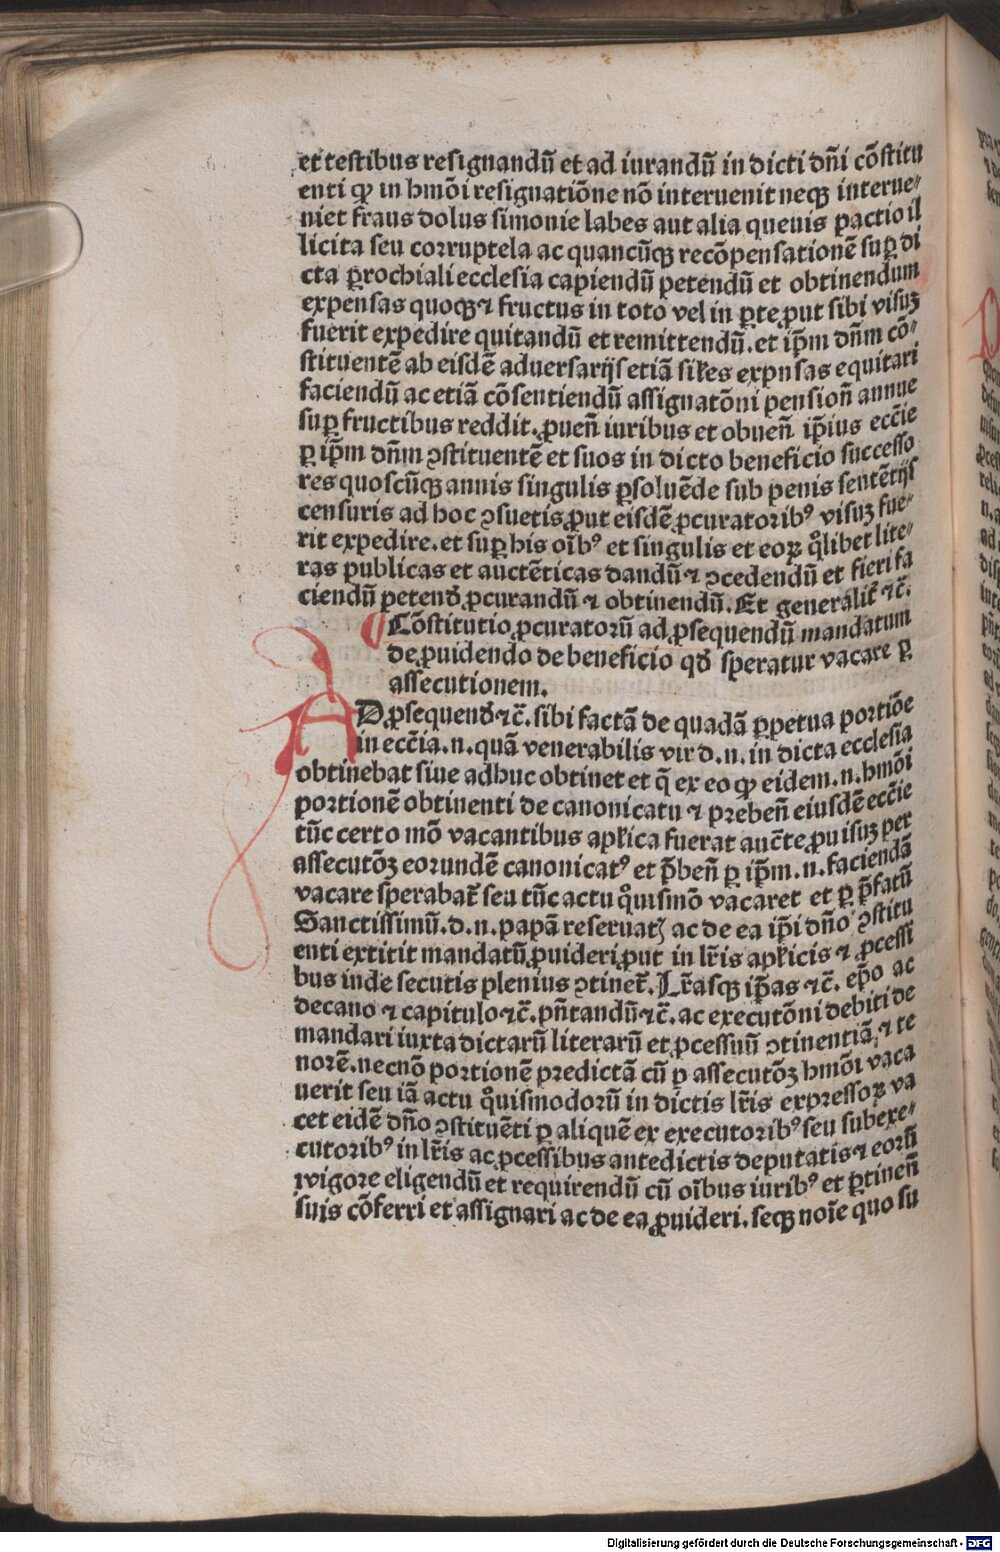 et testibus resignandū et ad iurandū in dicti dn̄i cōstitu
enti ꝙ in hmōi resignatiōne nō interuenit neqꝫ interue⸗
niet fraus dolus simonie labes aut alia queuis pactio il
licita seu corruptela ac quancūqꝫ recōpensationē suꝑ di
cta ꝑrochiali ecclesia capiendū petendū et obtinendum
expensas quoqꝫ ⁊ fructus in toto vel in ꝑte ꝓut sibi visuꝫ
fuerit expedire quitandū et remittendū. et ip̄m dn̄m cō⸗
stituentē ab eisdē aduersarijs etiā siłes expnsas equitari
faciendū ac etiā cōsentiendū assignatōni pension̄ annue
suꝑ fructibus reddit. ꝓuen̄ iuribus et obuen̄ ip̄ius ecc̄ie
ꝑ ip̄m dn̄m ꝯstituentē et suos in dicto beneficio successo
res quoscūqꝫ annis singulis ꝑsoluēde sub penis sentētijs
censuris ad hoc ꝯsuetis ꝓut eisdē ꝓcuratoribꝰ visuꝫ fue⸗
rit expedire. et suꝑ his oībꝰ et singulis et eoꝝ qͦlibet lite⸗
ras publicas et auctēticas dandū ⁊ ꝯcedendū et fieri fa
ciendū petend̄ ꝓcurandū ⁊ obtinendū. Et generalit̄ ⁊c̄.
¶ Cōstitutio ꝓcuratorū ad ꝓsequendū mandatum
de ꝓuidendo de beneficio qd̄ speratur vacare ꝑ
assecutionem.
AD ꝓsequend̄ ⁊c̄. sibi factā de quadā ꝑpetua portiōe
in ecc̄ia .n. quā venerabilis vir d. n. in dicta ecclesia
obtinebat siue adhuc obtinet et q̄ ex eo ꝙ eidem .n. hmōi
portionē obtinenti de canonicatu ⁊ preben̄ eiusdē ecc̄ie
tūc certo mō vacantibus apłica fuerat auc̄te ꝓuisuꝫ per
assecutōꝫ eorundē canonicatꝰ et p̄ben̄ ꝑ ip̄m .n. faciendā
vacare sperabat̄ seu tūc actu qͦuismō vacaret et ꝑ p̄fatū
Sanctissimū .d. n. papā reseruatꝭ ac de ea ip̄i dn̄o ꝯstitu
enti extitit mandatū ꝓuideri ꝓut in lr̄is apłicis ⁊ ꝓcessi
bus inde secutis plenius ꝯtinet̄. Lr̄asqꝫ ip̄as ⁊c̄. ep̄o ac
decano ⁊ capitulo ⁊c̄. pn̄tandū ⁊c̄. ac executōni debiti de
mandari iuxta dictarū literarū et ꝓcessuū ꝯtinentiā, ⁊ te
norē. necnō portionē predictā cū ꝑ assecutōꝫ hmōi vaca
uerit seu iā actu qͦuismodorū in dictis lr̄is expressoꝝ va
cet eidē dn̄o ꝯstituēti ꝑ aliquē ex executoribꝰ seu subexe⸗
cutoribꝰ in lr̄is ac ꝓcessibus antedictis deputatis ⁊ eorū
vigore eligendū et requirendū cū oībus iuribꝰ et ꝑtinen̄
suis cōferri et assignari ac de ea ꝓuideri. seqꝫ noīe quo su
Digitalisierung gefördert durch die Deutsche Forschungsgemeinschaft - DFG